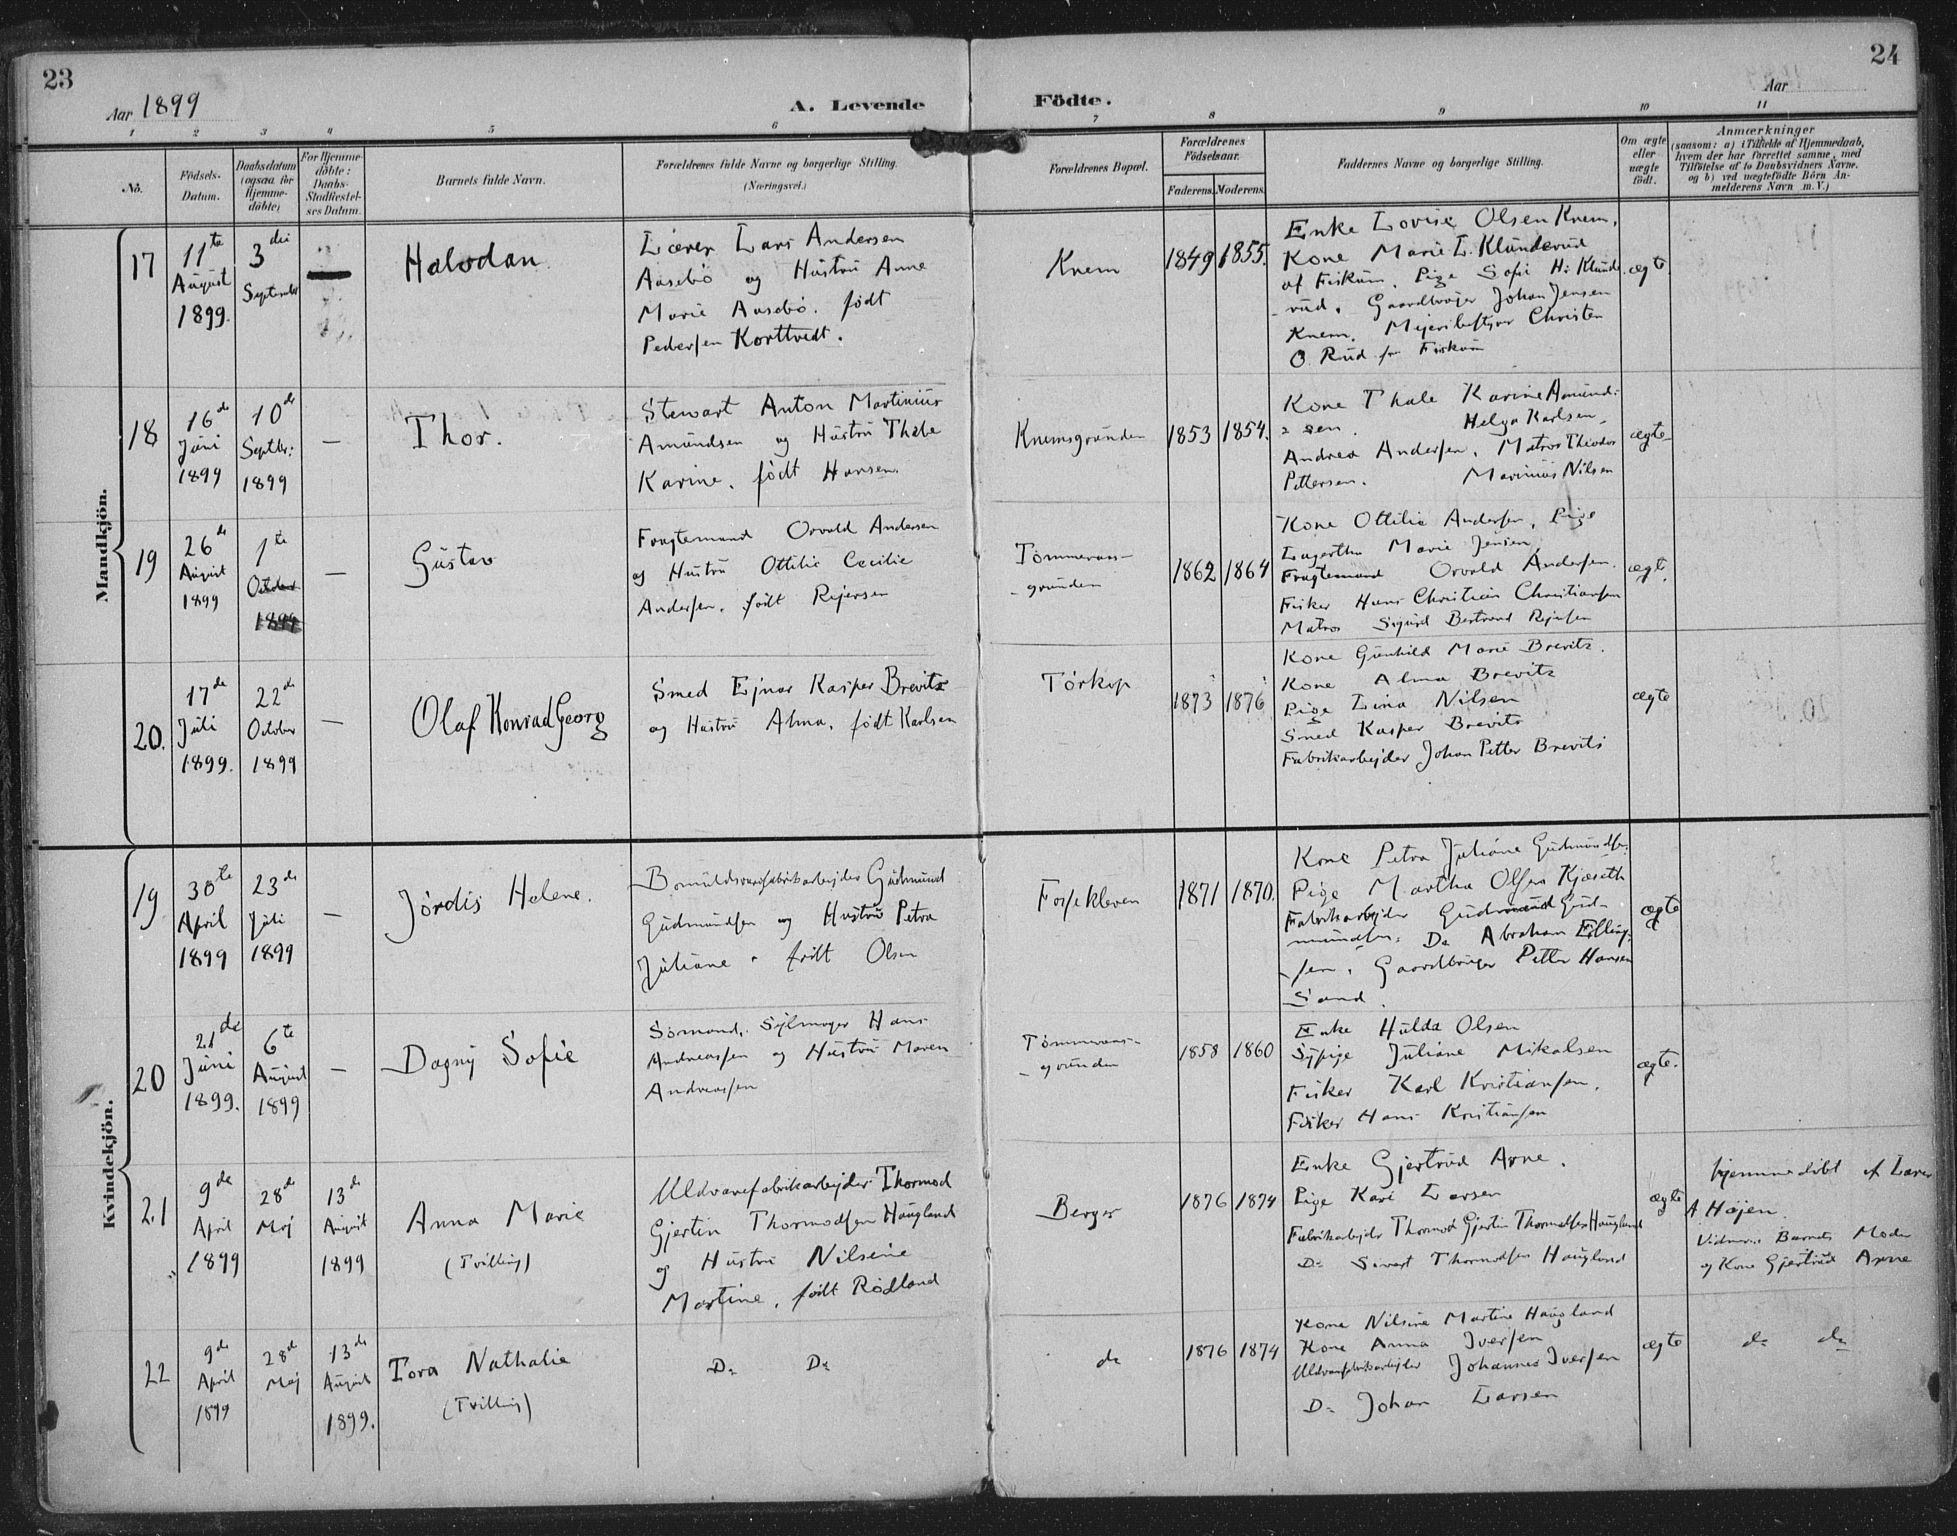 23
24
Aar 1899
A. Levende
Födte.
Aar
1 2 3 4 5 6 7 8 9 10 11
No.
Födsels-
Datum.
Daabsdatum
(ogsaa for
Hjemme-
döbte)
For Hjemme-
döbte:
Daabs-
Stadfæstel-
ses Datum.
Barnets fulde Navn.
Forældrenes fulde Navne og borgerlige Stilling.
(Næringsvei.)
Forældrenes Bopæl.
Forældrenes
Födselsaar.
Faderens.
Moderens.
Faddernes Navne og borgerlige Stilling.
Om ægte
eller
uægte
födt.
Anmærkninger
(saasom: a) i Tilfælde af Hjemmedaab,
hvem der har forrettet samme, med
Tilföielse af to Daabsvidners Navne.
og b) ved uægtefödte Börn An-
melderens Navn m. V.)
Mandkjön.
17
11te
August
1899.
3die
September
Halvdan
Lærer Lars Andersen
Aasebö og Hustru Anne
Marie Aasebö. født
Pedersen Korttvedt.
Knem
1849
1855.
Enke Lovise Olsen Knem.
Kone Marie L. Klunderud
af Fiskum. Pige Sofie H. Klunde
rud. Gaardbruger Johan Jensen
Knem. Christen
O. Rud fra Fiskum
ægte
18
16de
Juni
1899
10de
Septbr:
1899
—
Thor.
Stewart Anton Martinius
Amundsen og Hustru Thale
Karine. født Hansen.
Knemsgrunden
1853
1854.
Kone Thale Karine Amund:
= sen. Helga Karlsen,
Andrea Andersen. Matros Theodor
Pettersen. Marinius Nilsen
ægte
19
26de
August
1899
1te
October
1899
—
Gustav
Fragtemand Osvald Andersen
og Hustru Ottilie Cecilie
Andersen. født Rejersen
Tømmeraas-
-grunden
1862
1864
Kone Ottilie Andersen, Pige
Lagertha Marie Jensen,
Fragtemand Osvald Andersen.
Fisker Hans Christian Christiansen
Matros Sigurd Bertrand Rejersen
ægte.
20.
17de
Juli
1899.
22de
October
1899
—
Olaf Konrad Georg
Smed Ejnar Kasper Brevitz
og Hustru Alma. født Karlsen
Tørkop
1873
1876
Kone Gunhild Marie Brevitz.
Kone Alma Brevitz
Pige Lina Nilsen
Smed Kasper Brevitz
Fabrikarbejder Johan Petter Brevitz
ægte
Kvindekjön.
19
30te
April
1899
23de
Juli
1899
—
Jørdis Helene.
Gudmund
Gudmundsen og Hustru Petra
Juliane. født Olsen
Fossekleven
1871
1870.
Kone Petra Juliane Gudmundsen.
Pige Martha Olsen Kjæseth
Fabrikarbejder Gudmund Gud-
mundsen. Do Abraham Elling-
-sen. Gaardbruger Petter Hansen
Sand.
ægte
20
21de
Juni
1899.
6te
August
1899
—
Dagny Sofie
Sømand, Sejlmager Hans
Andreassen og Hustru Maren
Andreassen
Tømmeraas-
-grunden
1858
1860
Enke Hulda Olsen
Sypige Juliane Mikalsen
Fisker Karl Kristiansen.
Fisker Hans Kristiansen
ægte.
21
9de
April
1899
28de
Maj
13de
August
1899
Anna Marie
(Tvilling)
Uldvarefabrikarbejder Thormod
Gjertin Thormodsen Haugland
og Hustru Nilsine
Martine. født Rødland
Berger
1876
1874
Enke Gjertrud Arne.
Pige Kari Larsen
Fabrikarbejder Thormod Gjertin Thormodsen Haugland
Do Sivert Thormodsen Haugland
ægte
hjemmedøbt af Lærer
A Højen.
Vidner: Barnets Moder
og Kone Gjertrud Arne
22
9de
April
1899
28de
Maj
13de
August
1899.
Tora Nathalie
(Tvilling)
Do Do
do
1876
1874
Kone Nilsine Martine Haugland
Kone Anna Iversen
Uldvarefabrikarbejder Johannes Iversen
Do Johan Larsen
ægte
do do